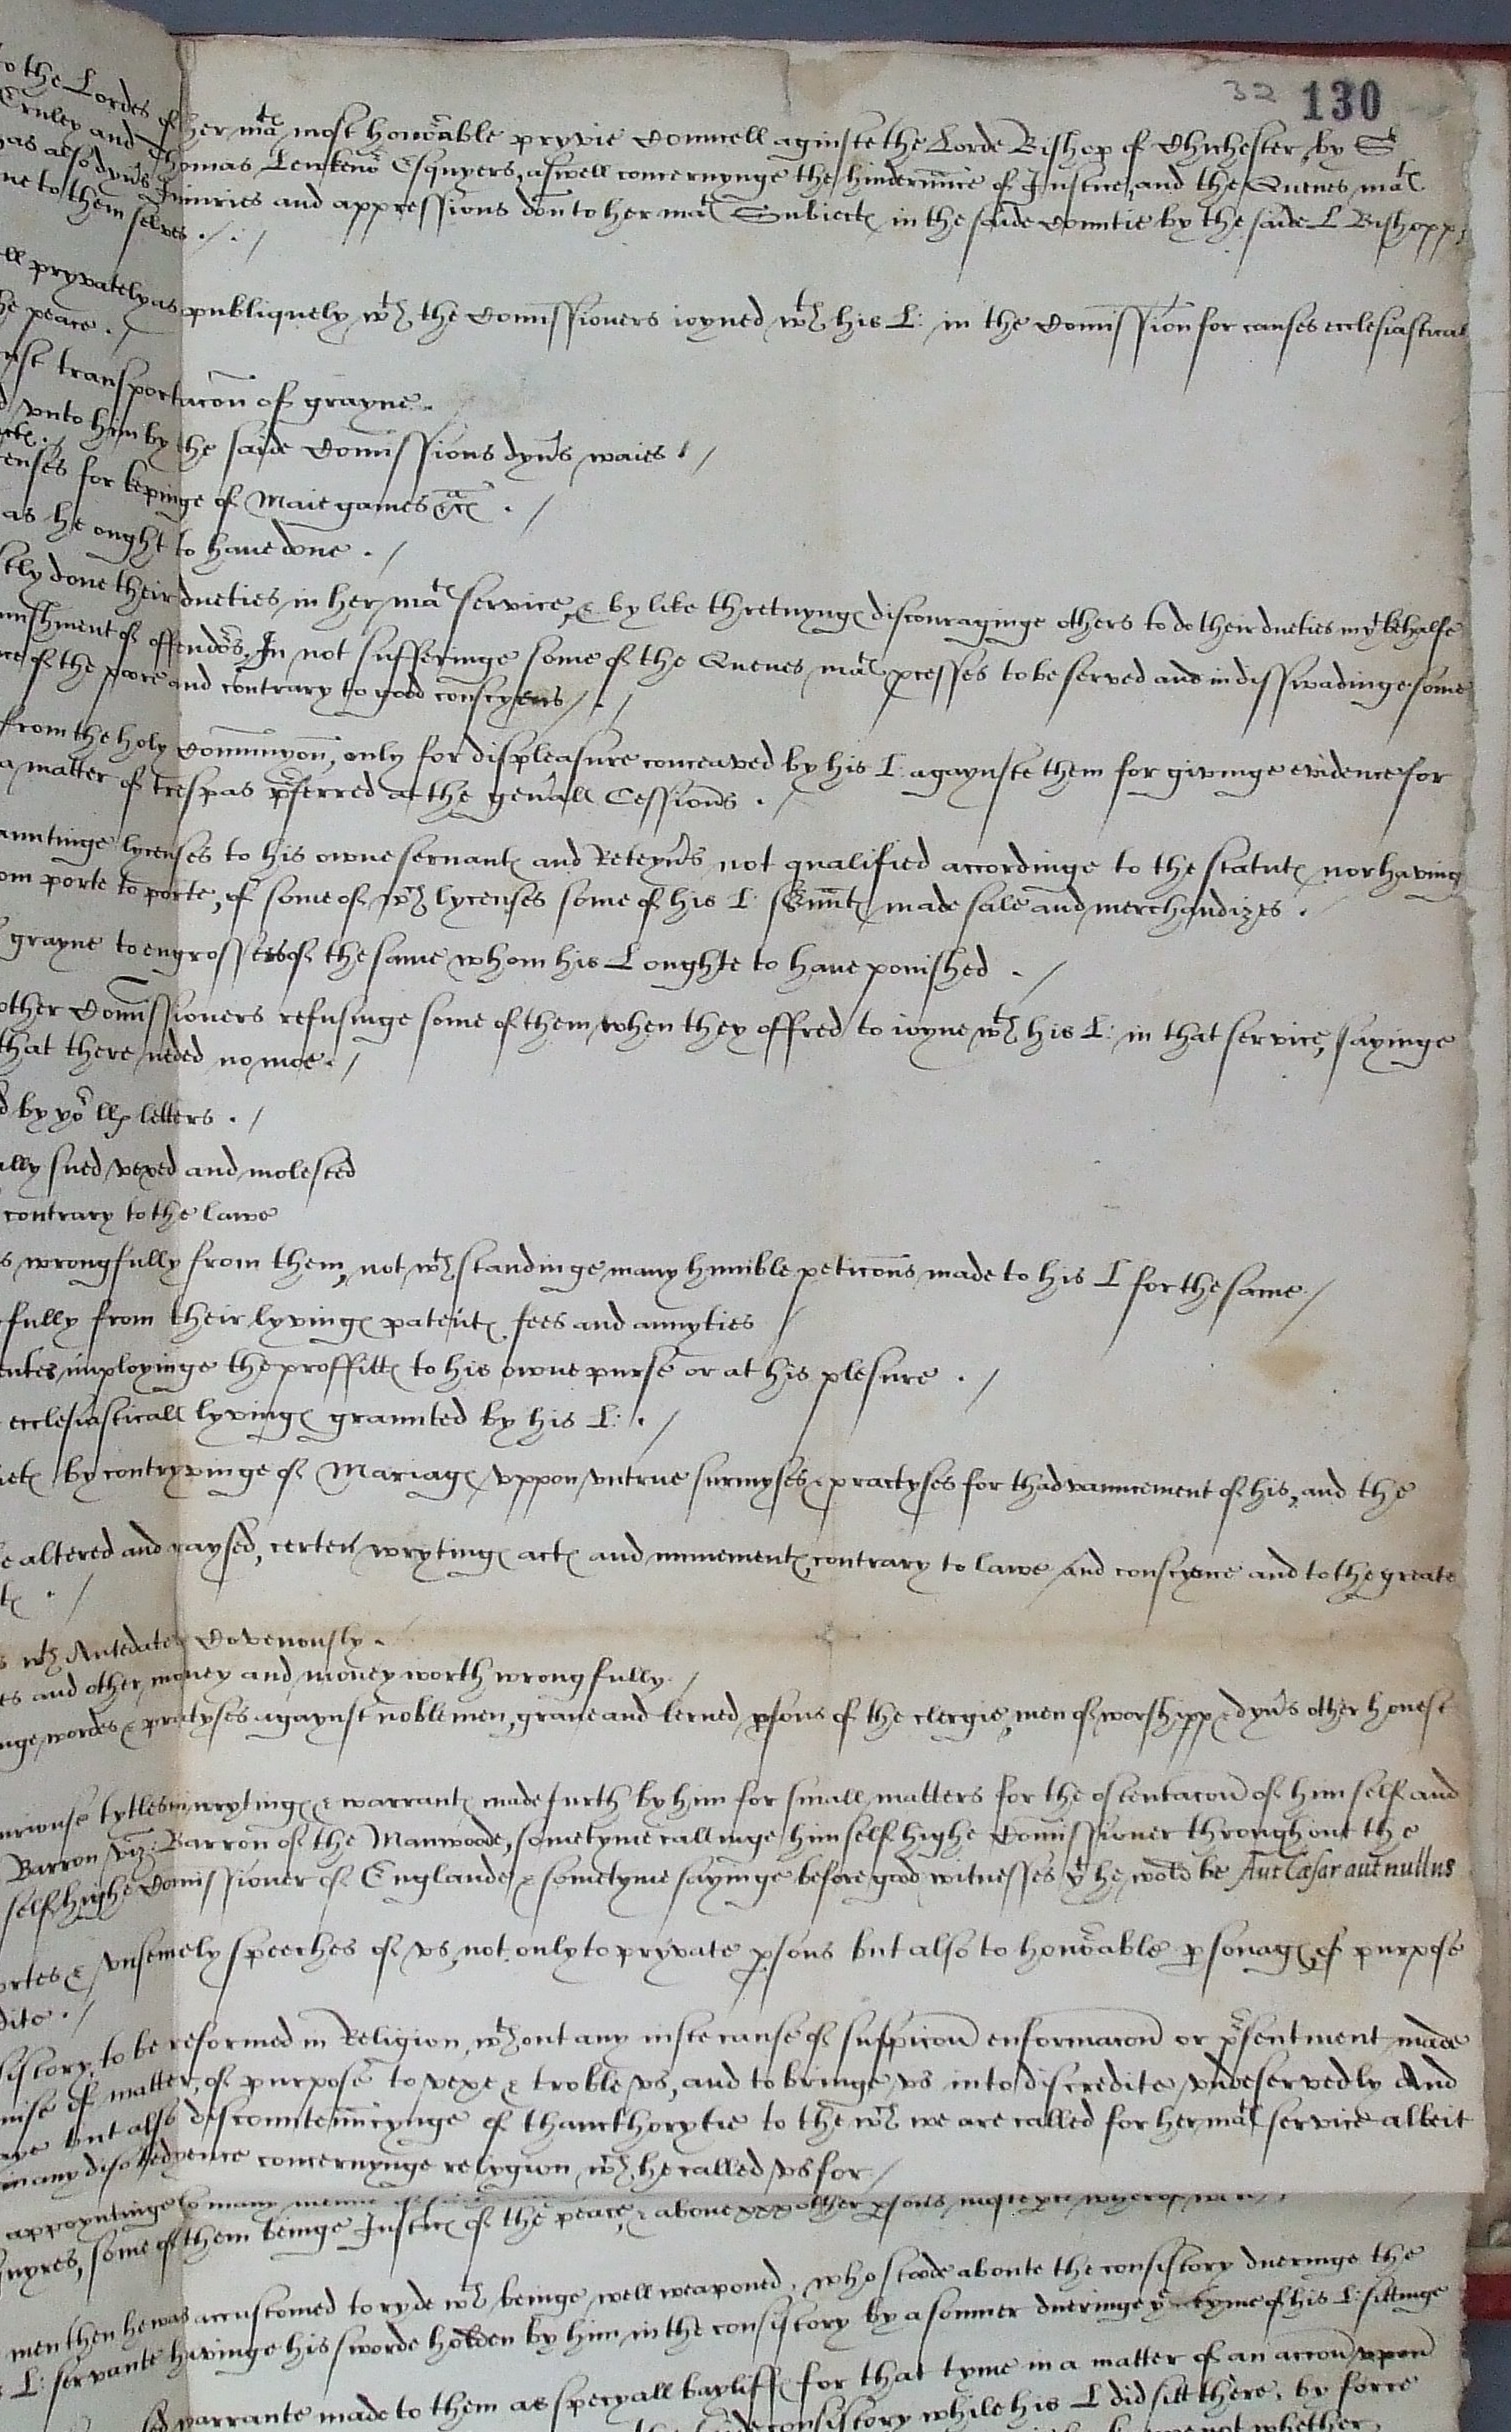 32 130
to the Lordes of her ma^te most honorable pryvie Councell aginste the Lorde Bishop of Chichester, by S^r
Ernley and Thomas Lewkenor Esquyers, aswell concernynge the hinderance of Justice, and the Quenes ma^te
as also dyv^s Iniuries and oppressions don to her ma^te Subiect℮ in the saide Countie by the saide L Bishopp,
ne to them selves . / . /
ll pryvately as publiquely w^th the Comissioners ioyned w^th his L: in the Comission for causes ecclesiasticall
he peace . /
nst transportacon of grayne .
d vnto him by the saide Comissions dyv^s waies . /
enses for kepinge of Maie games &c^a . /
as he ought to haue done . /
tly done their dueties in her ma^te service, & by like thretnyng℮ discouraginge others to do their dueties in y^t behalfe
unishment of offendo^rs, In not sufferinge some of the Quenes ma^te pcesses to be served and in disswadinge some
ce of the poore and contrary to good conscyens / . /
from the holy Communyon, only for displeasure conceaved by his L: agaynste them for givinge evidence for
a matter of trespas p^rferred at the gen^rall Cessions . /
auntinge lycenses to his owne servant℮ and Reteyn^rs not qualified accordinge to the statut℮ nor having
om porte to porte, of some of w^ch lycenses some of his L: s^rvunt℮ made sale and merchandizes .
grayne to engrossers of the same whom his L oughte to haue ponished . /
other Comissioners refusinge some of them when they offred to ioyne w^th his L: in that service, sayinge
that there neded no moe . /
d by yo^r llp letters . /
ally sued vexed and molested
contrary to the lawe
s wrongfully from them, not w^thstandinge many humble peticons made to his L for the same . /
fully from their lyving℮ patent℮ fees and annyties /
entes imployinge the proffitt℮ to his owne purse or at his plesure . /
ecclesiasticall lyving℮ graunted by his L: . /
iect℮ by contryvinge of Mariag℮ vppon vntrue surmyses & practyses for thadvauncement of his, and the
e altered and raysed, certen wryting℮ act℮ and munement℮ contrary to lawe and conscyence and to the greate
t℮ . /
s w^th Antedates Covenously .
es and other money and money worth wrongfully . /
nge wordes & practyses agaynst noble men, grave and lerned psons of the clergie, men of worshipp & dyv^s other honest
uriouse tytles in wryting℮ & warrant℮ made furth by him for small matters for the ostentacon of him self and
Barron viz: Barron of the Manwoode, sometyme callinge him self highe Comissioner throughout the
self highe Comissioner of Englande & sometyme sayinge before good witnesses y^t he wold be Aut Cæsar aut nullus
ortes & vnsemely speeches of vs, not only to pryvate psons but also to honorable psonag℮ of purpose
dite . /
sistory, to be reformed in Religion, w^thout any iuste cause of suspicon enformacon or p^rsentment made
mise of matter, of purpose to vexe & troble vs, and to bringe vs into discredite vndeservedly And
aye but also discountenancynge of thaucthorytie to the w^ch we are called for her ma^te service albeit
in any disobedyence concernynge relygion w^ch he called vs for /
appoyntinge so many
quyres, some of them beinge Justic℮ of the peace, & aboue xxx other psons
men then he was accustomed to ryde w^th beinge well weaponed, who stode aboute the consistory dueringe the
L: servante havinge his sworde holden by him in the consistory by a somner dueringe y^e tyme of his L: sittinge
warrante made to them as specyall bayliff℮ for that tyme in a matter of an accon vpon
consistory while his L did sitt there, by force
not whether